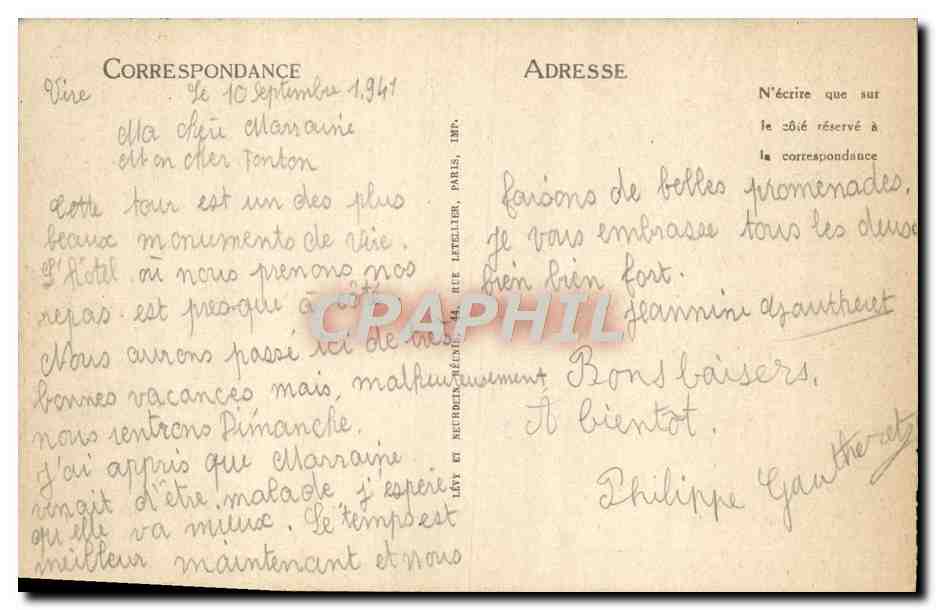 CORRESPONDANCE
Vire Le 10 Septembre 1941
Ma chère Marraine
Mon cher Tonton
Cette tour est un des plus
beaux monuments de Vire.
L'Hôtel où nous prenons nos
repas est presque à côté
Nous aurons passé ici de très
bonnes vacances mais, malheureusement
nous rentrons Dimanche.
J'ai appris que Marraine
venait d'être malade j'espère
qu'elle va mieux. Le temps est
meilleur maintenant et nous
LÉVY ET NEURDEIN RÉUNIS, 44, RUE LETELLIER, PARIS, IMP.
ADRESSE
N'écrire que sur
le côté réservé à
la correspondance
faisons de belles promenades.
Je vous embrasse tous les deux
bien bien fort.
Jeannine Gautheret
Bons baisers.
A bientot.
Philippe Gautheret
CPAPHIL